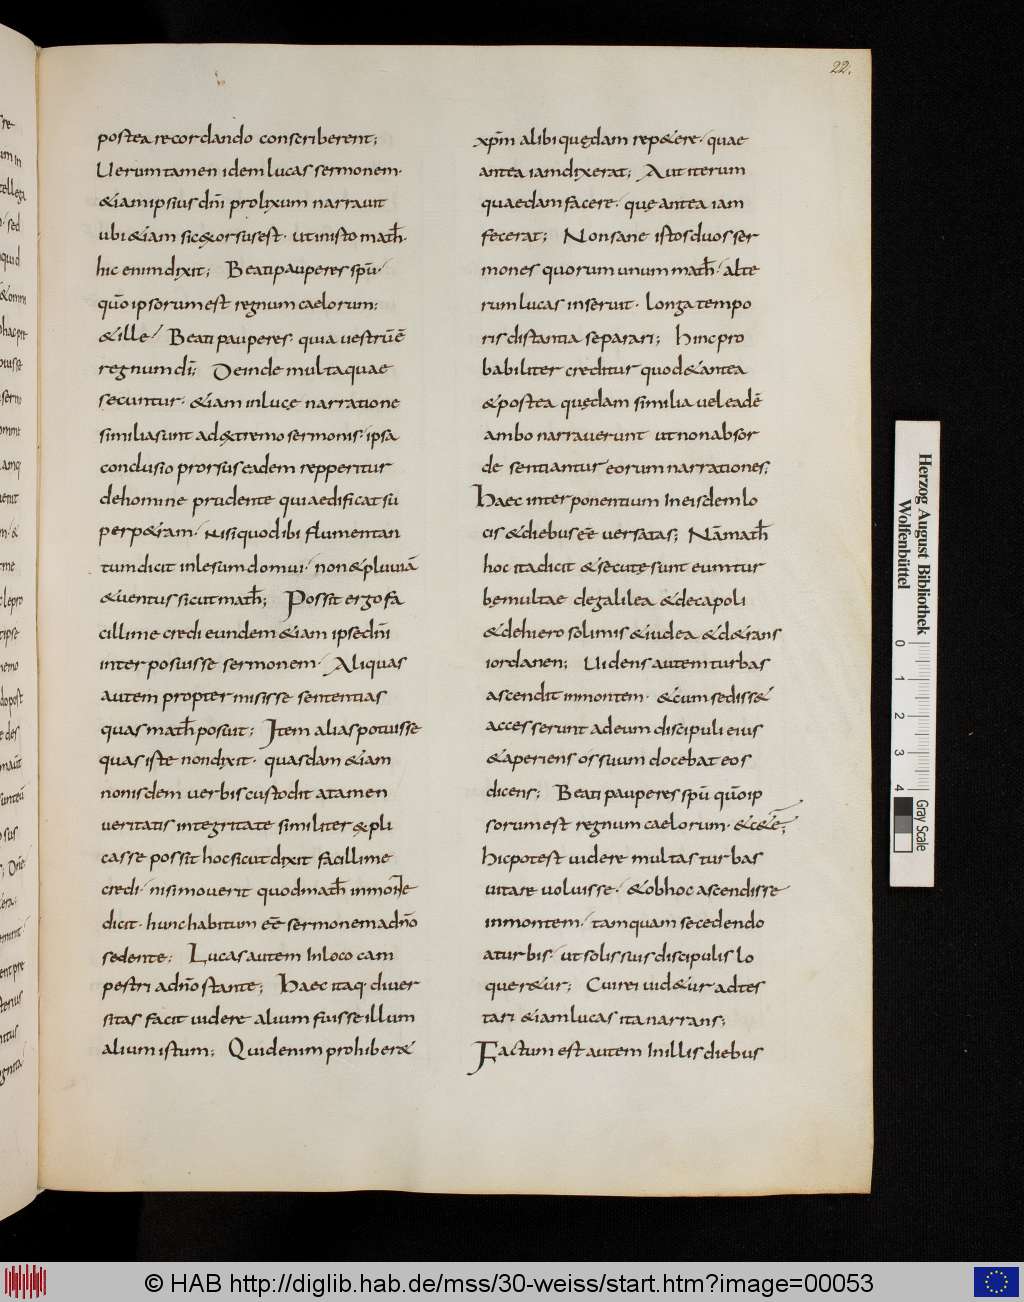 22.
postea recordando conscriberent;
Uerumtamen idem lucas sermonem·
&iam ipsius dn̄i prolixum narrauit
ubi &iam sic &orsus est· ut in isto math̄·
hic enim dixit; Beati pauperes spū·
quō ipsorum est regnum caelorum;
& ille· Beati pauperes· quia uestrū ē
regnum dī; Deinde multa quae
secuntur· &iam in lucę narratione
similia sunt ad &tremo sermonis· ipsa
conclusio prorsus eadem repperitur
de homine prudente qui aedificat sū
per p&ram· nisi quod ibi flumen tan
tum dicit inlesum domui· non & pluuiā
& uentus sicut math̄; Possit ergo fa
cillime credi eundem &iam ipse dn̄i
interposuisse sermonem· Aliquas
autem propter misisse sententias
quas math̄ posuit; Item alias potuisse
quas iste non dixit· quasdam &iam
non isdem uerbis custodit a tamen
ueritatis integritate similiter &pli
casse possit hoc sicut dixit facillime
credi· nisi mouerit quod math̄ in monte
dicit· hunc habitum eē sermonem a dn̄o
sedente; Lucas autem In loco cam
pestri a dn̄o stante; Haec itaq· diuer
sitas facit uidere alium fuisse illum
alium istum; Quid enim prohiber&
xpm̄ alibi quędam rep&ere· quae
antea iam dixerat; Aut iterum
quaedam facere· quę antea iam
fecerat; Non sane istos duos ser
mones quorum unum math̄· alte
rum lucas inseruit· longa tempo
ris distantia separari; Hinc pro
babiliter creditur quod & antea
& postea quędam similia uel eadē
ambo narrauerunt ut non absor
de sentiantur eorum narrationes;
Haec interponentium In eisdem lo
cis & diebus eē uersatas; Nā math̄
hoc ita dicit & secutę sunt eum tur
bę multae de galilea & decapoli
& de hierosolimis & iudea & d& ians
iordanen; Uidens autem turbas
ascendit in montem· & cum sediss&
accesserunt ad eum discipuli eius
& aperiens os suum docebat eos
dicens; Beati pauperes spū quō ip
sorum est regnum caelorum· & c&ē;
Hic potest uidere multas turbas
uitare uoluisse· & ob hoc ascendisse
in montem· tamquam secedendo
a turbis· ut solis suis discipulis lo
quer&ur; Cui rei uid&ur adtes
tari &iam lucas ita narrans;
Factum est autem In illis diebus
Herzog August Bibliothek
Wolfenbüttel
0 1 2 3 4
Gray Scale
© HAB http://diglib.hab.de/mss/30-weiss/start.htm?image=00053